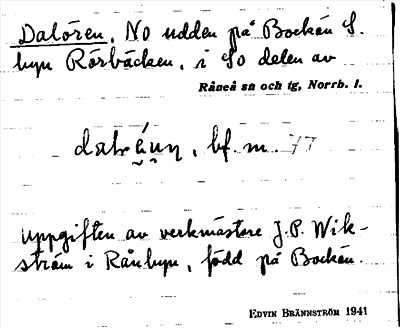 Dalören. NO udden på Bockön S.
byn Rörbäcken, i SO delen av
Råneå sn och tg, Norrb. l.
bf. m. 77
Uppgiften av verkmästare J. P. Wik-
ström i Rånbyn, född på Bockön.
EDVIN BRÄNNSTRÖM 1941